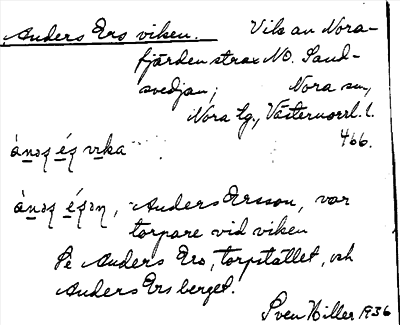 Anders Ers viken. Vik av Nora-
fjärden strax NO. Sand-
svedjan; Nora sn,
Nora tg., Västernorrl. l.
466.
Anders Ersson, var
torpare vid viken
Se Anders Ers, torpstället, och
Anders Ers berget.
Sven Hiller 1936